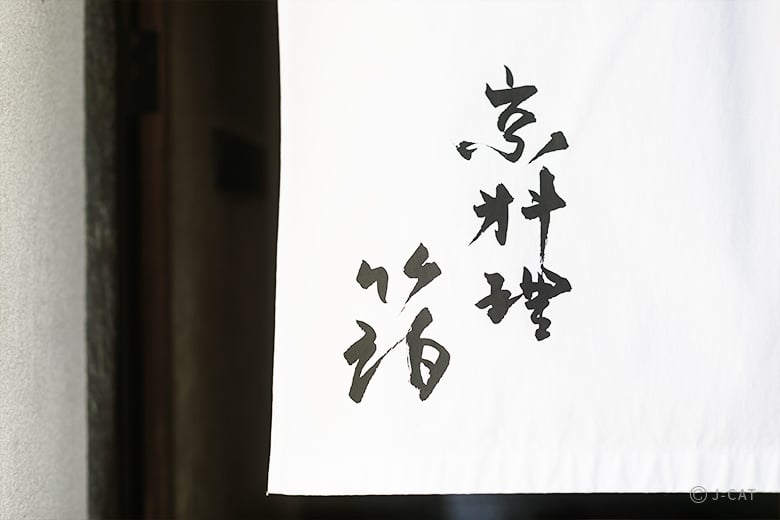 京料理
箔
© J-CAT